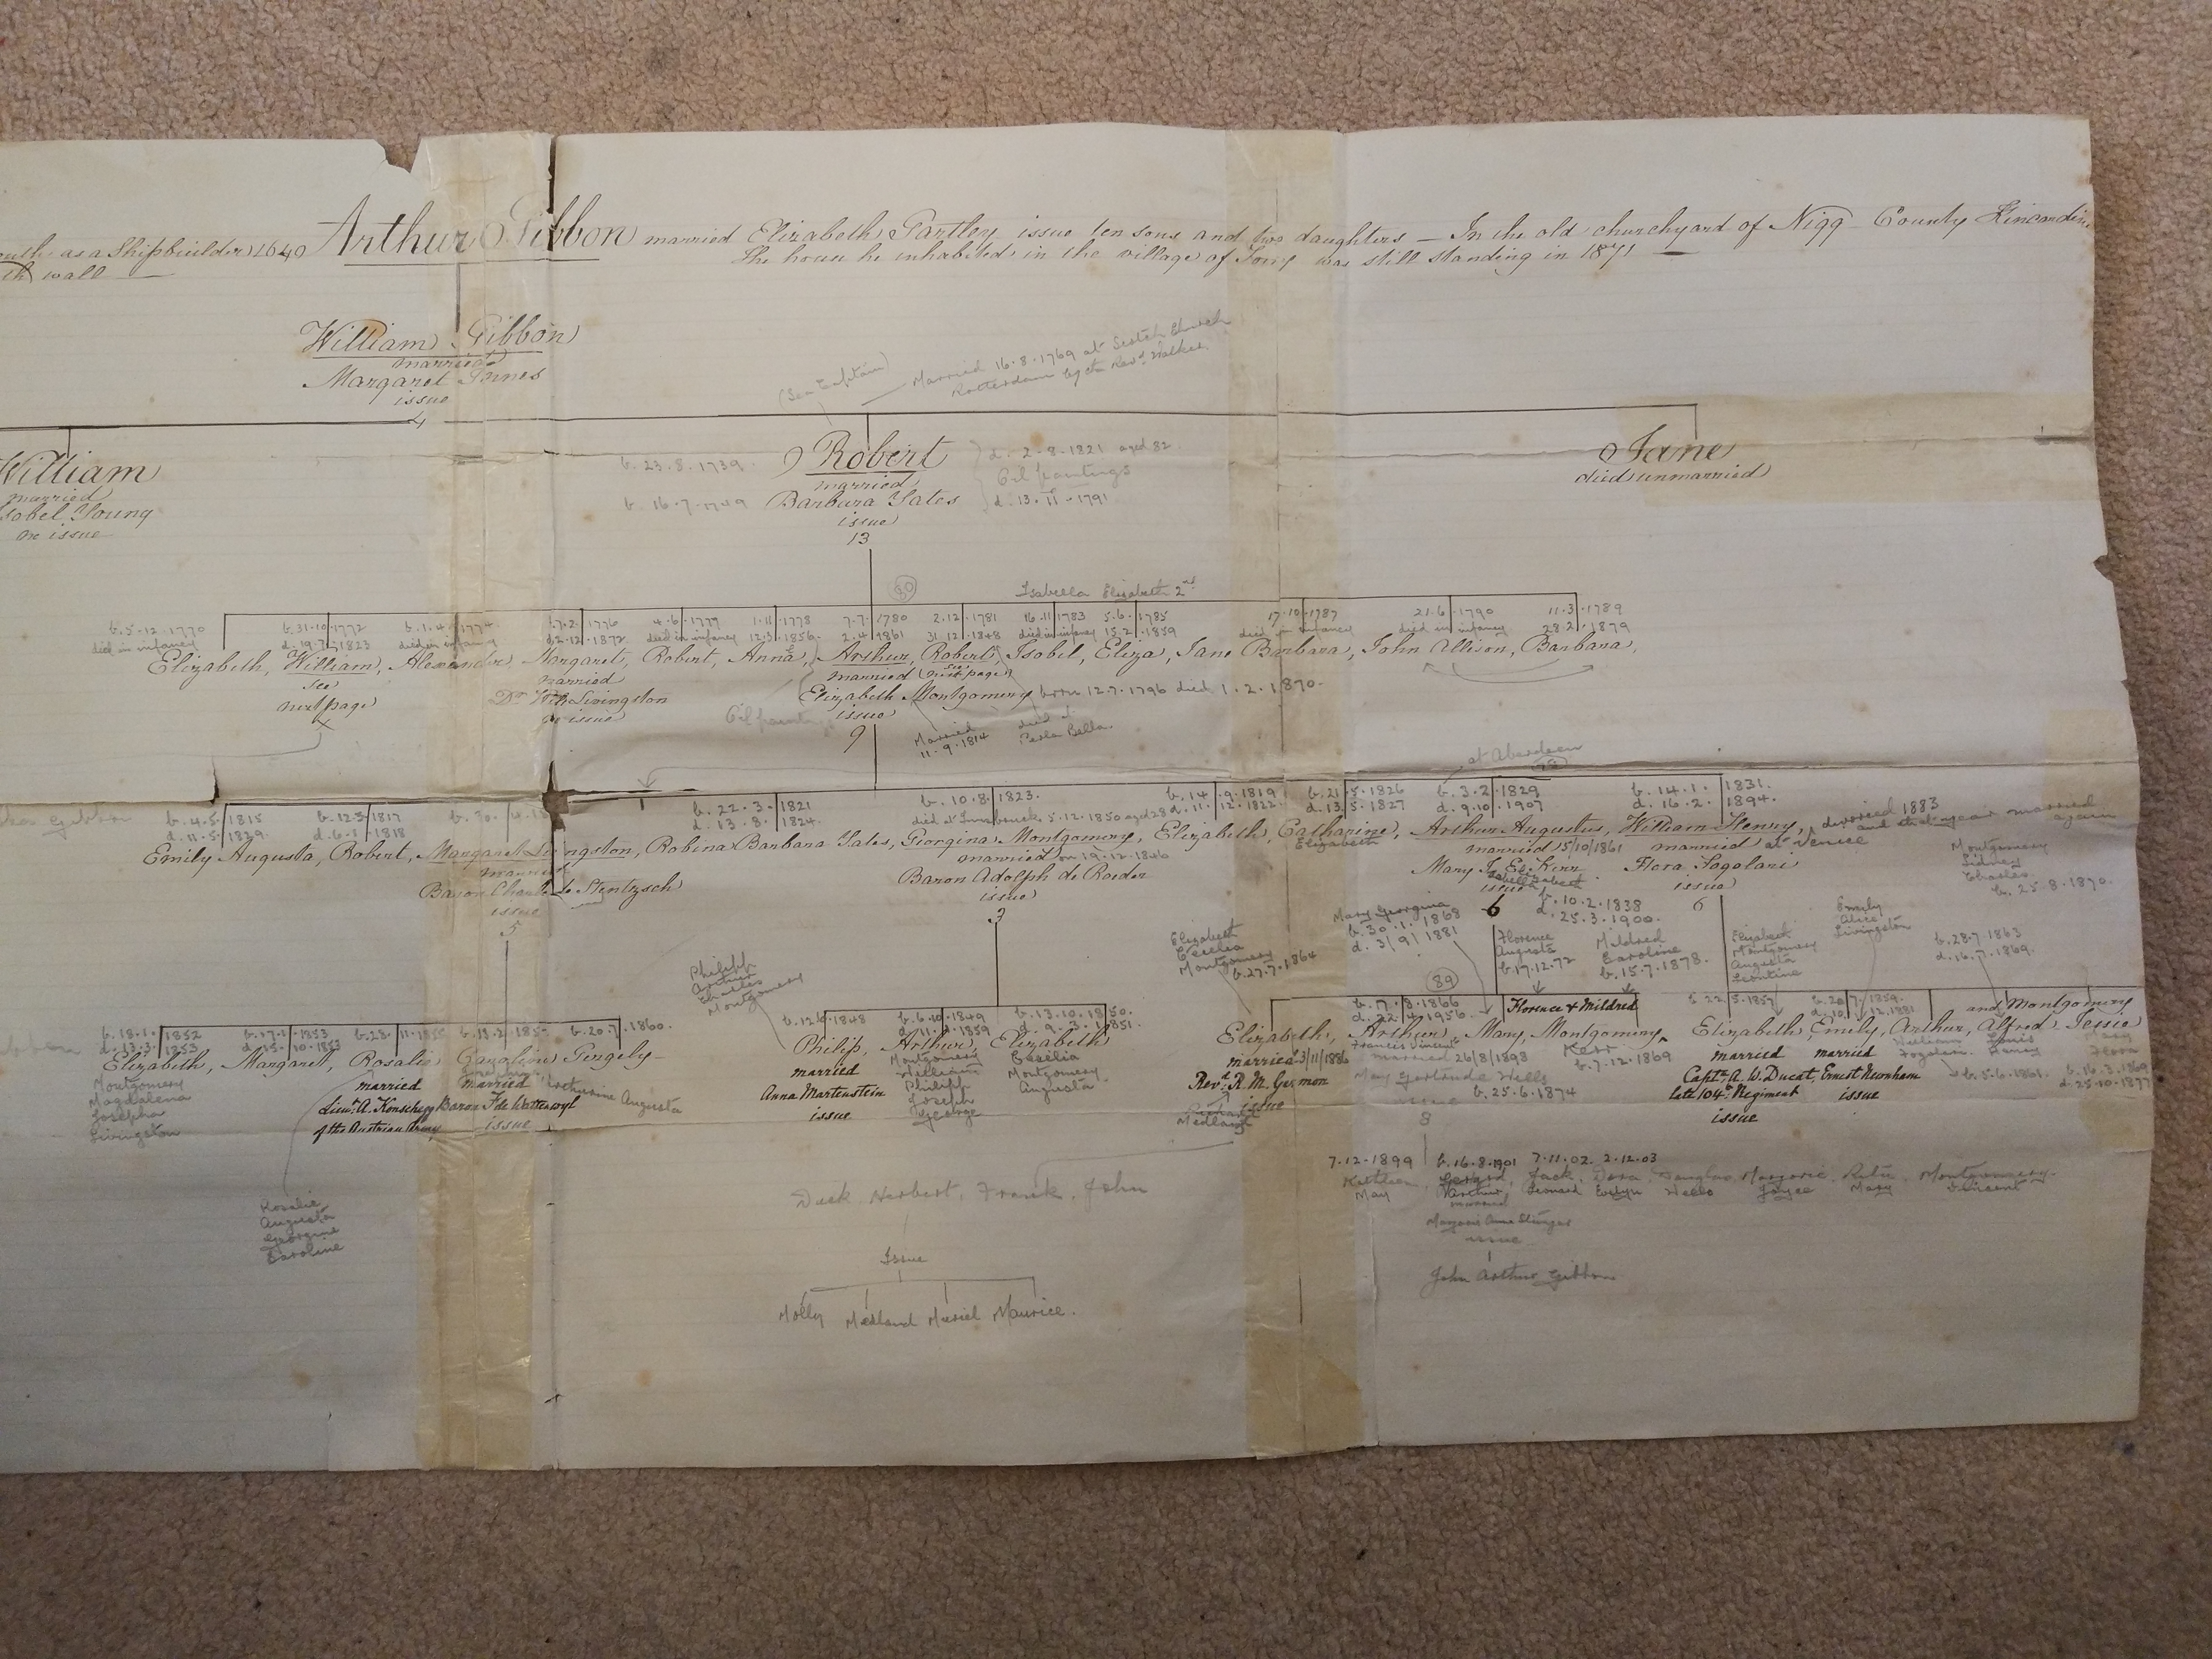 as a Shipbuilder 1640 Arthur Gibbon married Elizabeth Partley issue ten sons and two daughters — In the old churchyard of Nigg County Kincardine
wall — The house he inhabited in the village of Torry was still standing in 1871 —
William Gibbon
married
Margaret
issue
4
(Sea Captain)
Married 16.8.1769 at Scotch Church
Rotterdam by the Revd. Walker.
William
married
Isobel Young
no issue
b. 23.8.1739. Robert d. 2-8-1821 aged 82
married Oil paintings
b. 16.7.1749 Barbara Yates d. 13-11-1791
issue
13
Jane
died unmarried
80
Isabella Elizabeth 2nd
b. 5.12.1770 b. 31.10.1772 b. 1.4.1774 7.2.1776 4.6.1777 1.11.1778 7.7.1780 2.12.1781 16.11.1783 5.6.1785 17.10.1787 21.6.1790 11.3.1789
died in infancy d. 19.7.1823 died in infancy d. 2.12.1872 died in infancy 12.3.1856 2.4.1861 31.12.1848 died in infancy 15.2.1859 died in infancy died in infancy 28.2.1879
Elizabeth, William, Alexander, Margaret, Robert, Anna, Arthur, Robert, Isobel, Eliza, Jane Barbara, John Allison, Barbara,
see married married (see next page)
next page Dr. Livingston Elizabeth Montgomery born 12.7.1796 died 1.2.1870.
issue issue
9
Married
11.9.1814
died at
at Aberdeen
b. 4.5.1815 b. 12.3.1817 b. 30. b. 22.3.1821 b. 10.8.1823. b. 14.9.1819 b. 21.5.1826 b. 3.2.1829 b. 14.1.1831.
d. 11.5.1829. d. 6.1.1818 d. 13.8.1824. died at Innsbruck 5.12.1850 aged 28 d. 11.12.1822. d. 13.5.1827 d. 9.10.1907 d. 16.2.1894.
Emily Augusta, Robert, Margaret Livingston, Robina Barbara Yates, Georgina Montgomery, Elizabeth, Catharine, Arthur Augustus, William Henry, divorced 1883
and that year married again
married married on 19.12.1846 Elizabeth married 15/10/1861 married at Venice
Baron de Stentzsch Baron Adolph de Roeder Mary Kerr Flora Fogolari
issue issue issue issue
5 3 6 6
b. 10.2.1838
d. 25.3.1900.
Montgomery
Sidney
Charles
b. 25.8.1870.
Philipp
Arthur
Charles
Montgomery
Elizabeth
Cecilia
Montgomery
b. 27.7.1864
Mary Georgina
b. 30.1.1868
d. 3/9/1881
Florence
Augusta
b. 17.12.72
Mildred
Caroline
b. 15.7.1878.
Elizabeth
Montgomery
Augusta
Leontine
Emily
Alice
Livingston
b. 28.7.1863
d. 16.7.1869.
89
b. 18.1.1852 b. 17.1.1853 b. 28.11. b. 19.2. b. 20.7.1860. b. 12.6.1848 b. 6.10.1849 b. 13.10.1850. b. 17.8.1866 Florence & Mildred b. 22.5.1857 b. 20.7.1859.
d. 13.3.1853 d. 15.10.1853 d. 11. .1859 d. 9.3.1851. d. 22.4.1956. d. 10.12.1881 and Montgomery
Elizabeth, Margaret, Rosalie Caroline Gergely Philip, Arthur, Elizabeth Elizabeth, Arthur, Mary, Montgomery Elizabeth, Emily, Arthur, Alfred, Jessie
Montgomery
Magdalena
Josepha
Livingston
married
Lieut. A. Konschegg
of the Austrian Army
married
Baron F. de Wattenwyl
issue
Augusta
married
Anna Martenstein
issue
Montgomery
William
Philipp
Joseph
George
Cecilia
Montgomery
Augusta
married 3/11/1886
Revd. R. M. Germon
issue
Medland
Francis Vincent
married 26/8/1898
May Gertrude Wells
b. 25.6.1874
issue
8
Kerr
b. 7.12.1869
married
Captn. A. W. Ducat,
late 104th. Regiment
issue
married
Ernest Newnham
issue
William
Fogolari
b. 5.6.1861.
Louis
Henry
Mary
Flora
b. 16.3.1869
d. 25.10.1877
Rosalie
Augusta
Georgine
Caroline
Dick Herbert, Frank, John
Issue
Molly Medland Muriel Maurice.
7.12.1899 b. 16.8.1901 7.11.02. 2.12.03
Kathleen, Gerard, Jack, Dora, Douglas Marjorie, Ruth, Montgomery.
May Arthur, Leonard Evelyn Wells Joyce Mary Vincent
married
Marjorie Anne
issue
John Arthur Gibbon